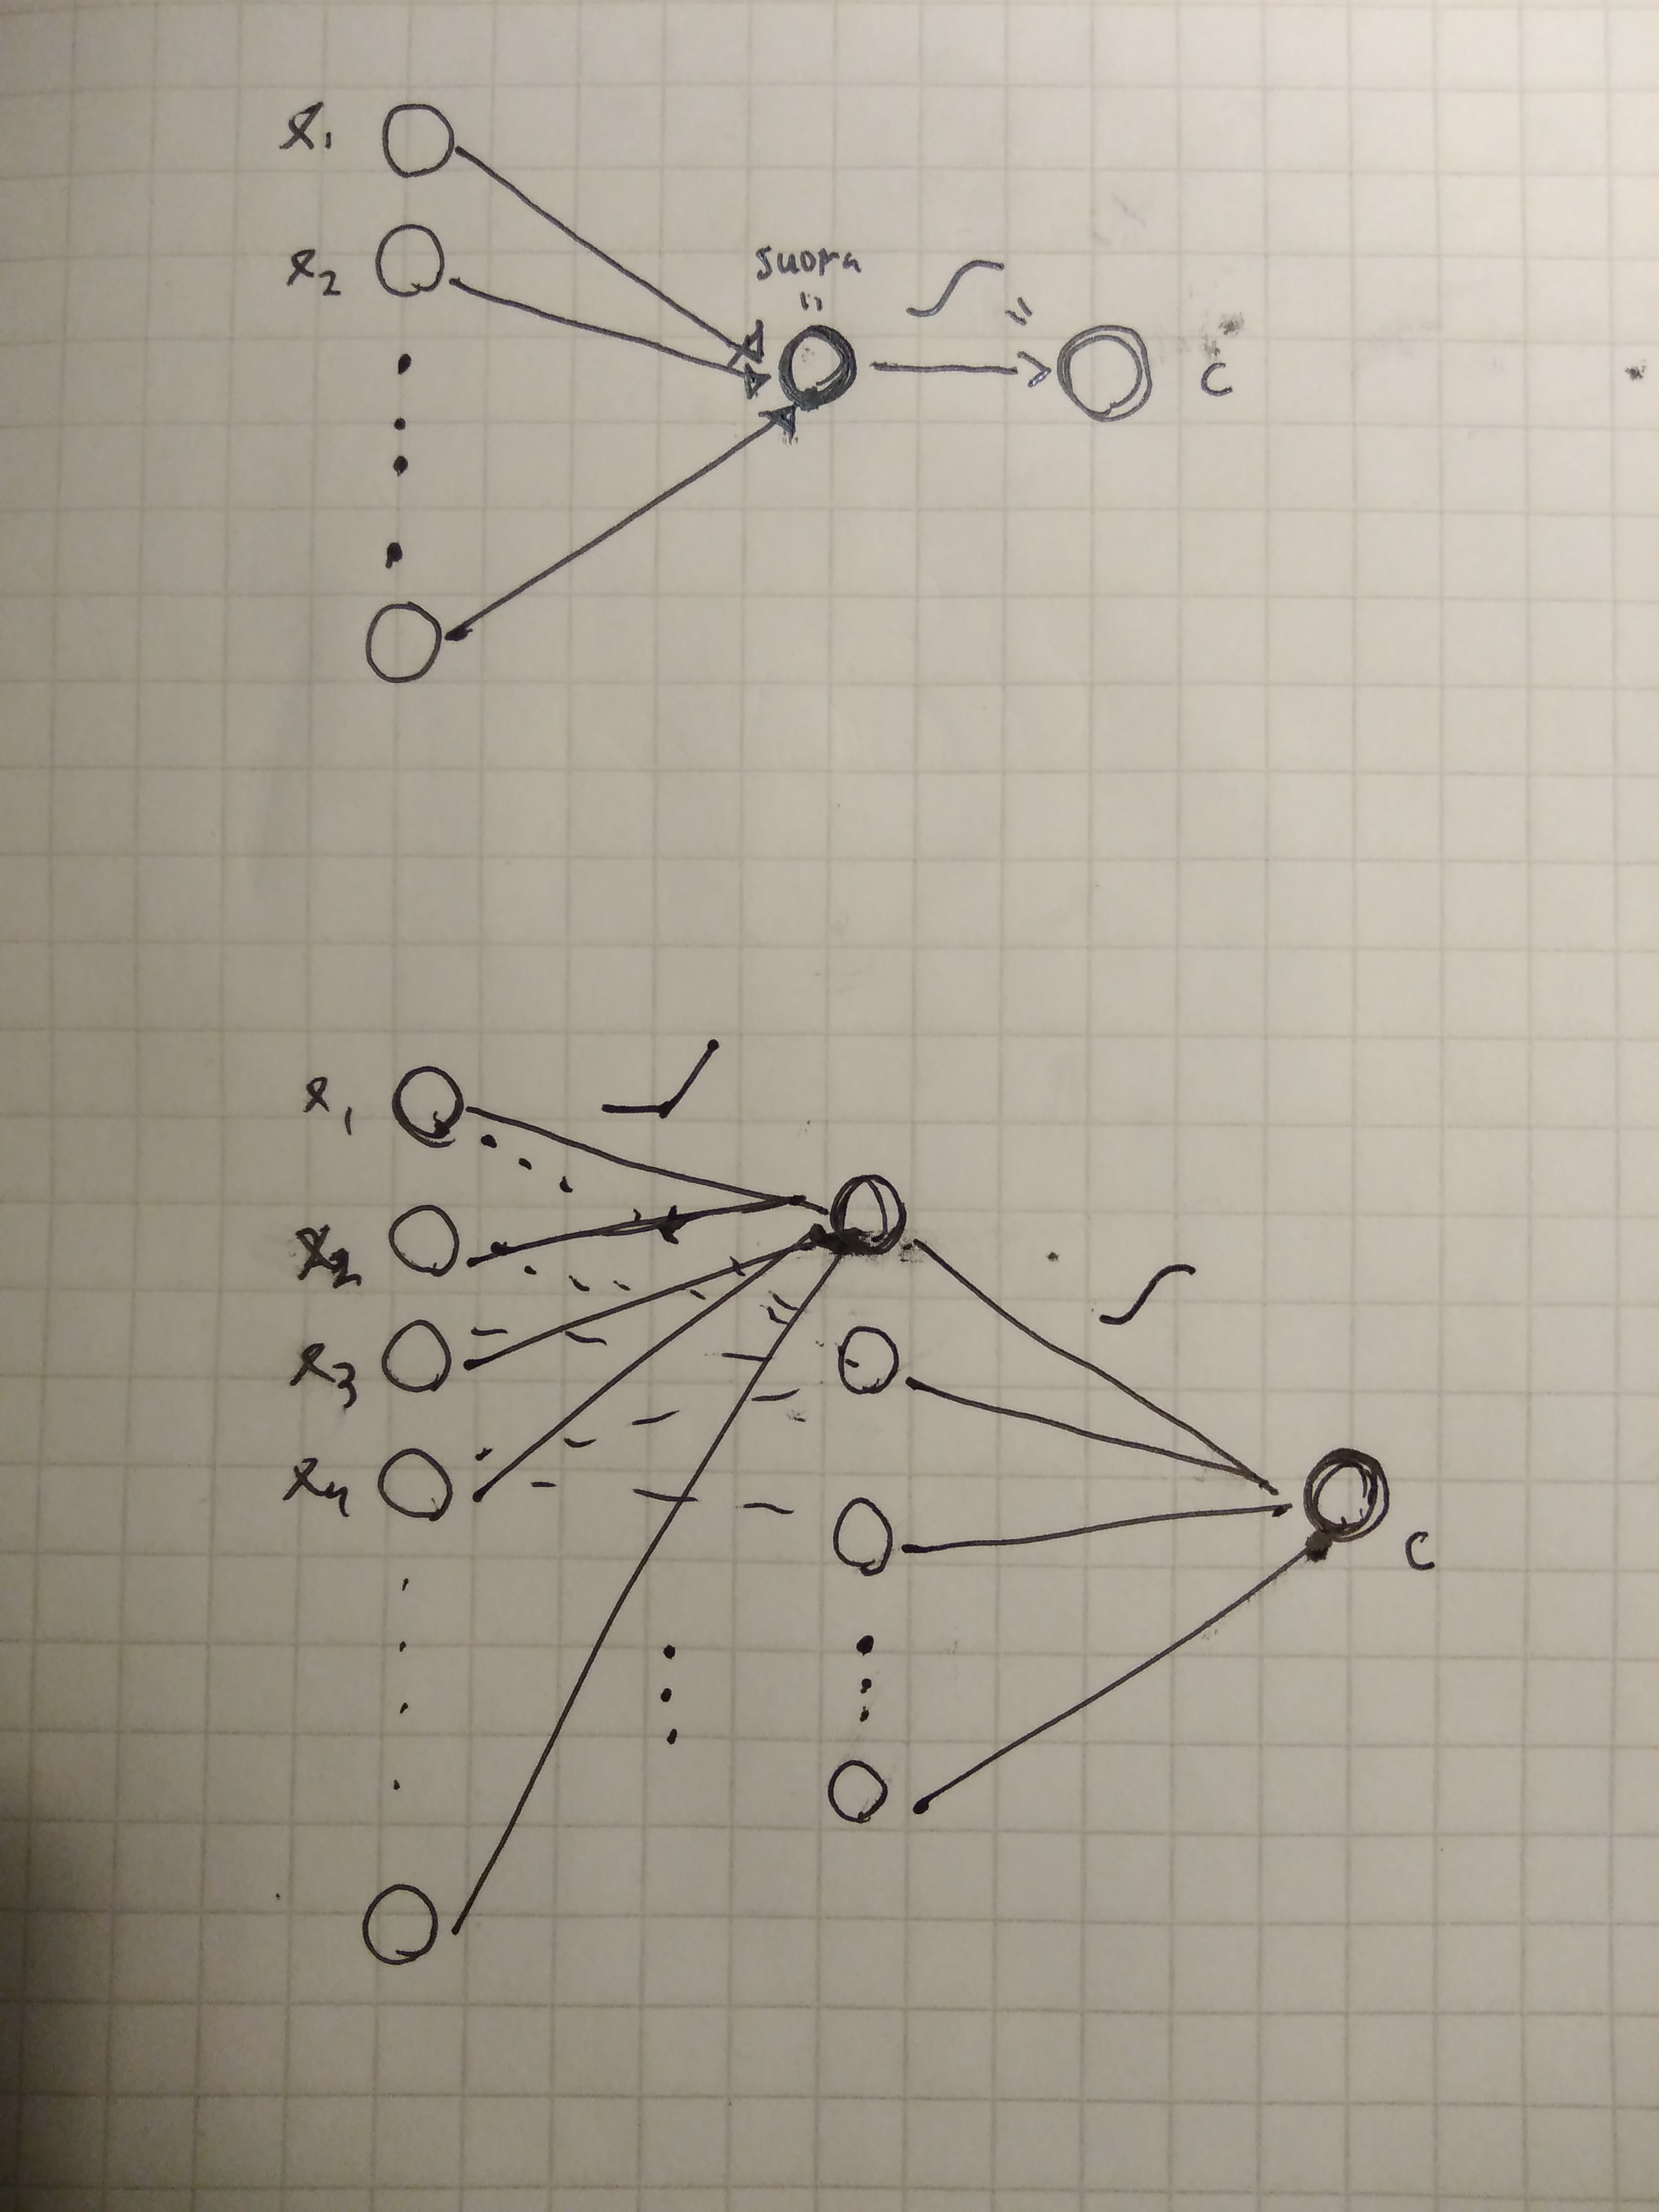 x₁
x₂
suora
c
x₁
x₂
x₃
x₄
c